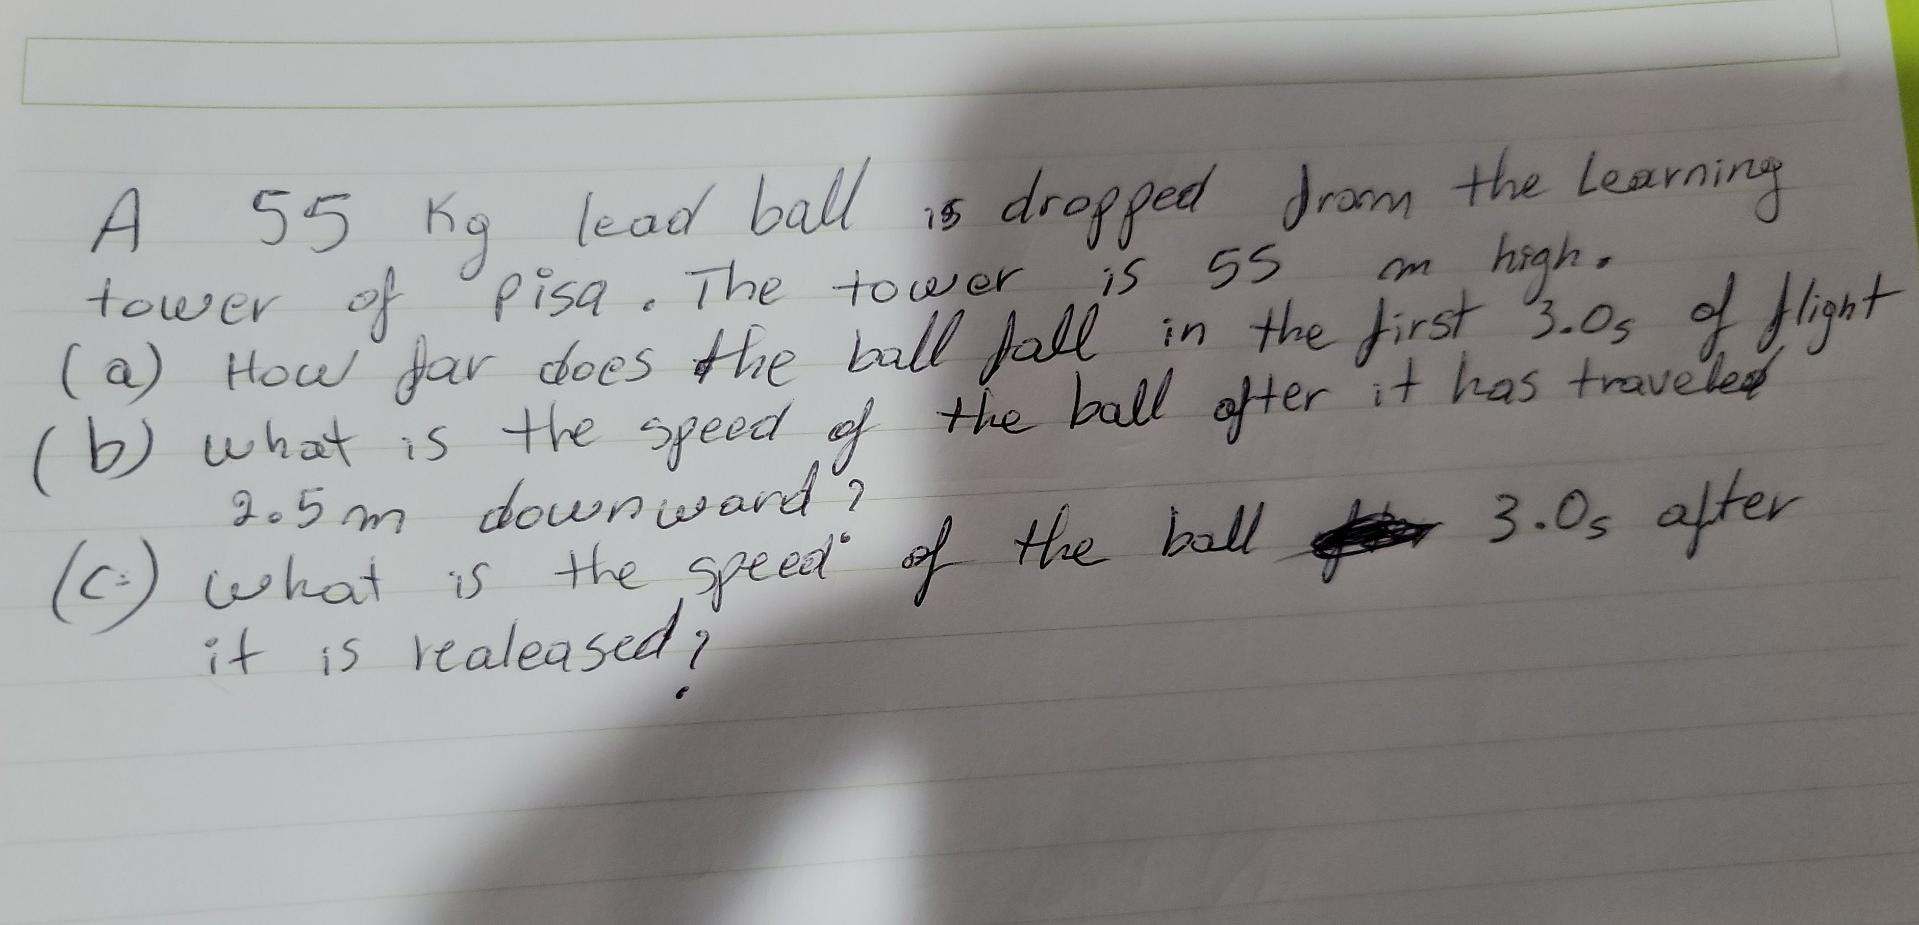 A 55 Kg lead ball is dropped from the Learning
tower of pisa. The tower is 55 m high.
(a) How far does the ball fall in the first 3.0s of flight
(b) what is the speed of the ball after it has traveled
2.5m downward?
(c) what is the speed of the ball 3.0s after
it is realeased?